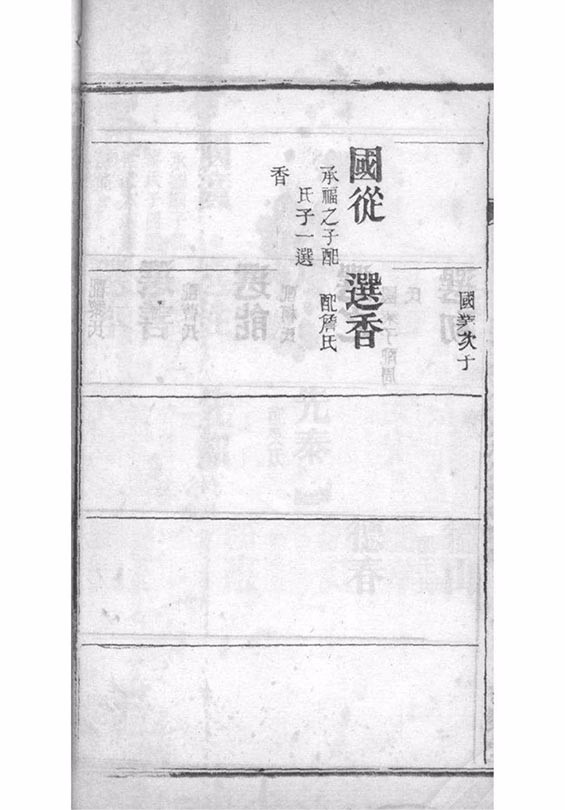 國從
承福之子配
氏子一選
香
國
次子
選香
配詹氏